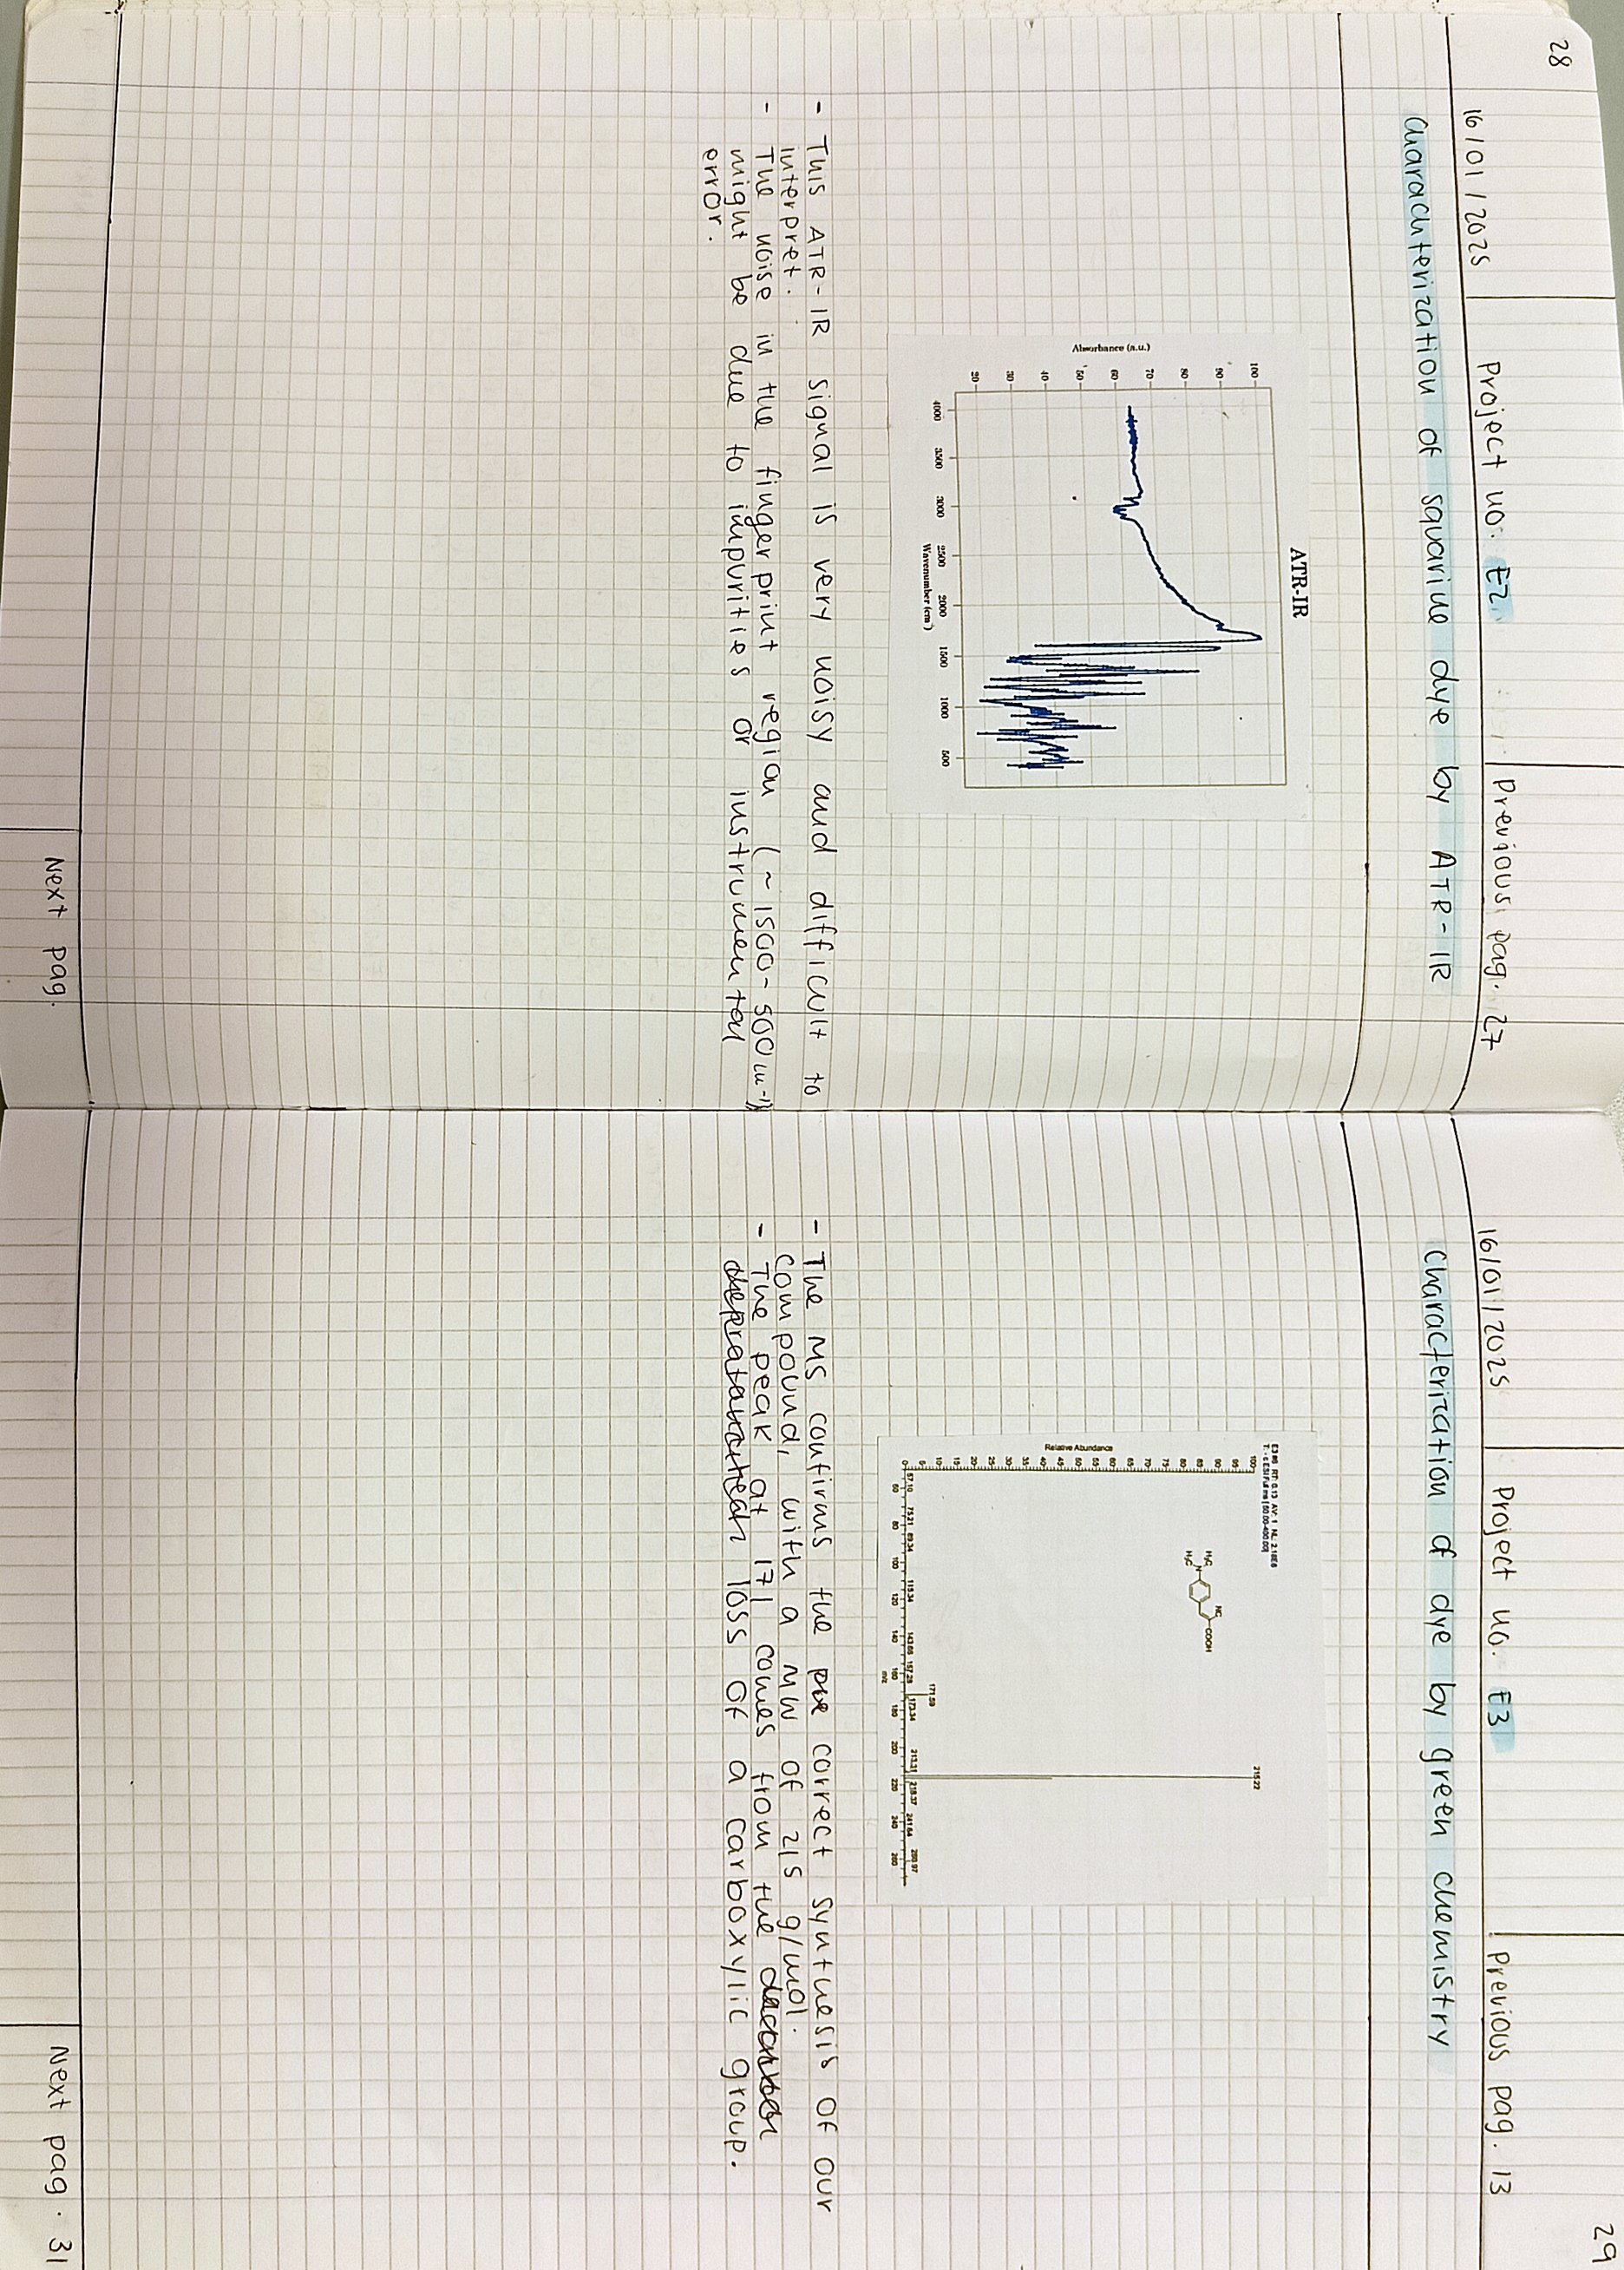 28
16/01/2025
Project no: E2
Previous pag. 27
Characterization of squarine dye by ATR-IR
ATR-IR
Absorbance (a.u.)
100
90
80
70
60
50
40
30
20
4000
3500
3000
2500
2000
1500
1000
500
Wavenumber (cm⁻¹)
- This ATR-IR signal is very noisy and difficult to
interpret.
- The noise in the fingerprint region (~1500-500 cm⁻¹)
might be due to impurities or instrumental
error.
Next pag.
29
16/01/2025
Project no. E3
Previous pag. 13
Characterization of dye by green chemistry
E3 #6 RT: 0.13 AV: 1 NL: 2.18E6
T: - c ESI Full ms [50.00-400.00]
Relative Abundance
100
95
90
85
80
75
70
65
60
55
50
45
40
35
30
25
20
15
10
5
0
H₃C
H₃C
N
NC
COOH
215.22
171.59
57.10
75.21
89.34
115.34
143.66
157.29
173.34
213.31
218.37
241.64
260.97
60
80
100
120
140
160
180
200
220
240
260
m/z
- The MS confirms the correct synthesis of our
compound, with a MW of 215 g/mol.
- The peak at 171 comes from the
loss of a carboxylic group.
Next pag. 31